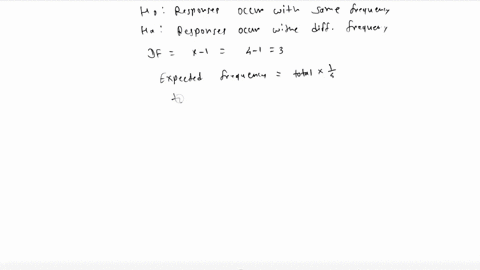 H0: Responses occur with same frequency
Ha: Responses occur withe diff. frequency
DF = x-1 = 4-1 = 3
Expected frequency = total × 1/4